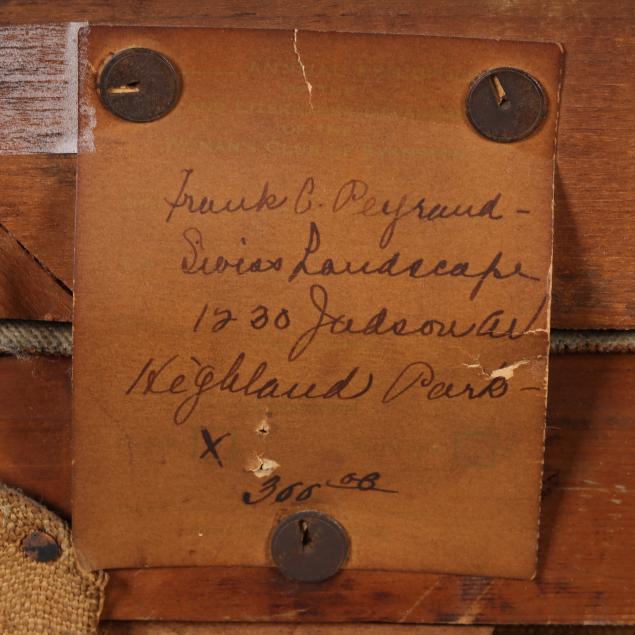 OF THE
WOMAN'S CLUB OF EVANSTON
Frank C. Peyraud -
Swiss Landscape
1230 Judson Av
Highland Park -
X
300 00